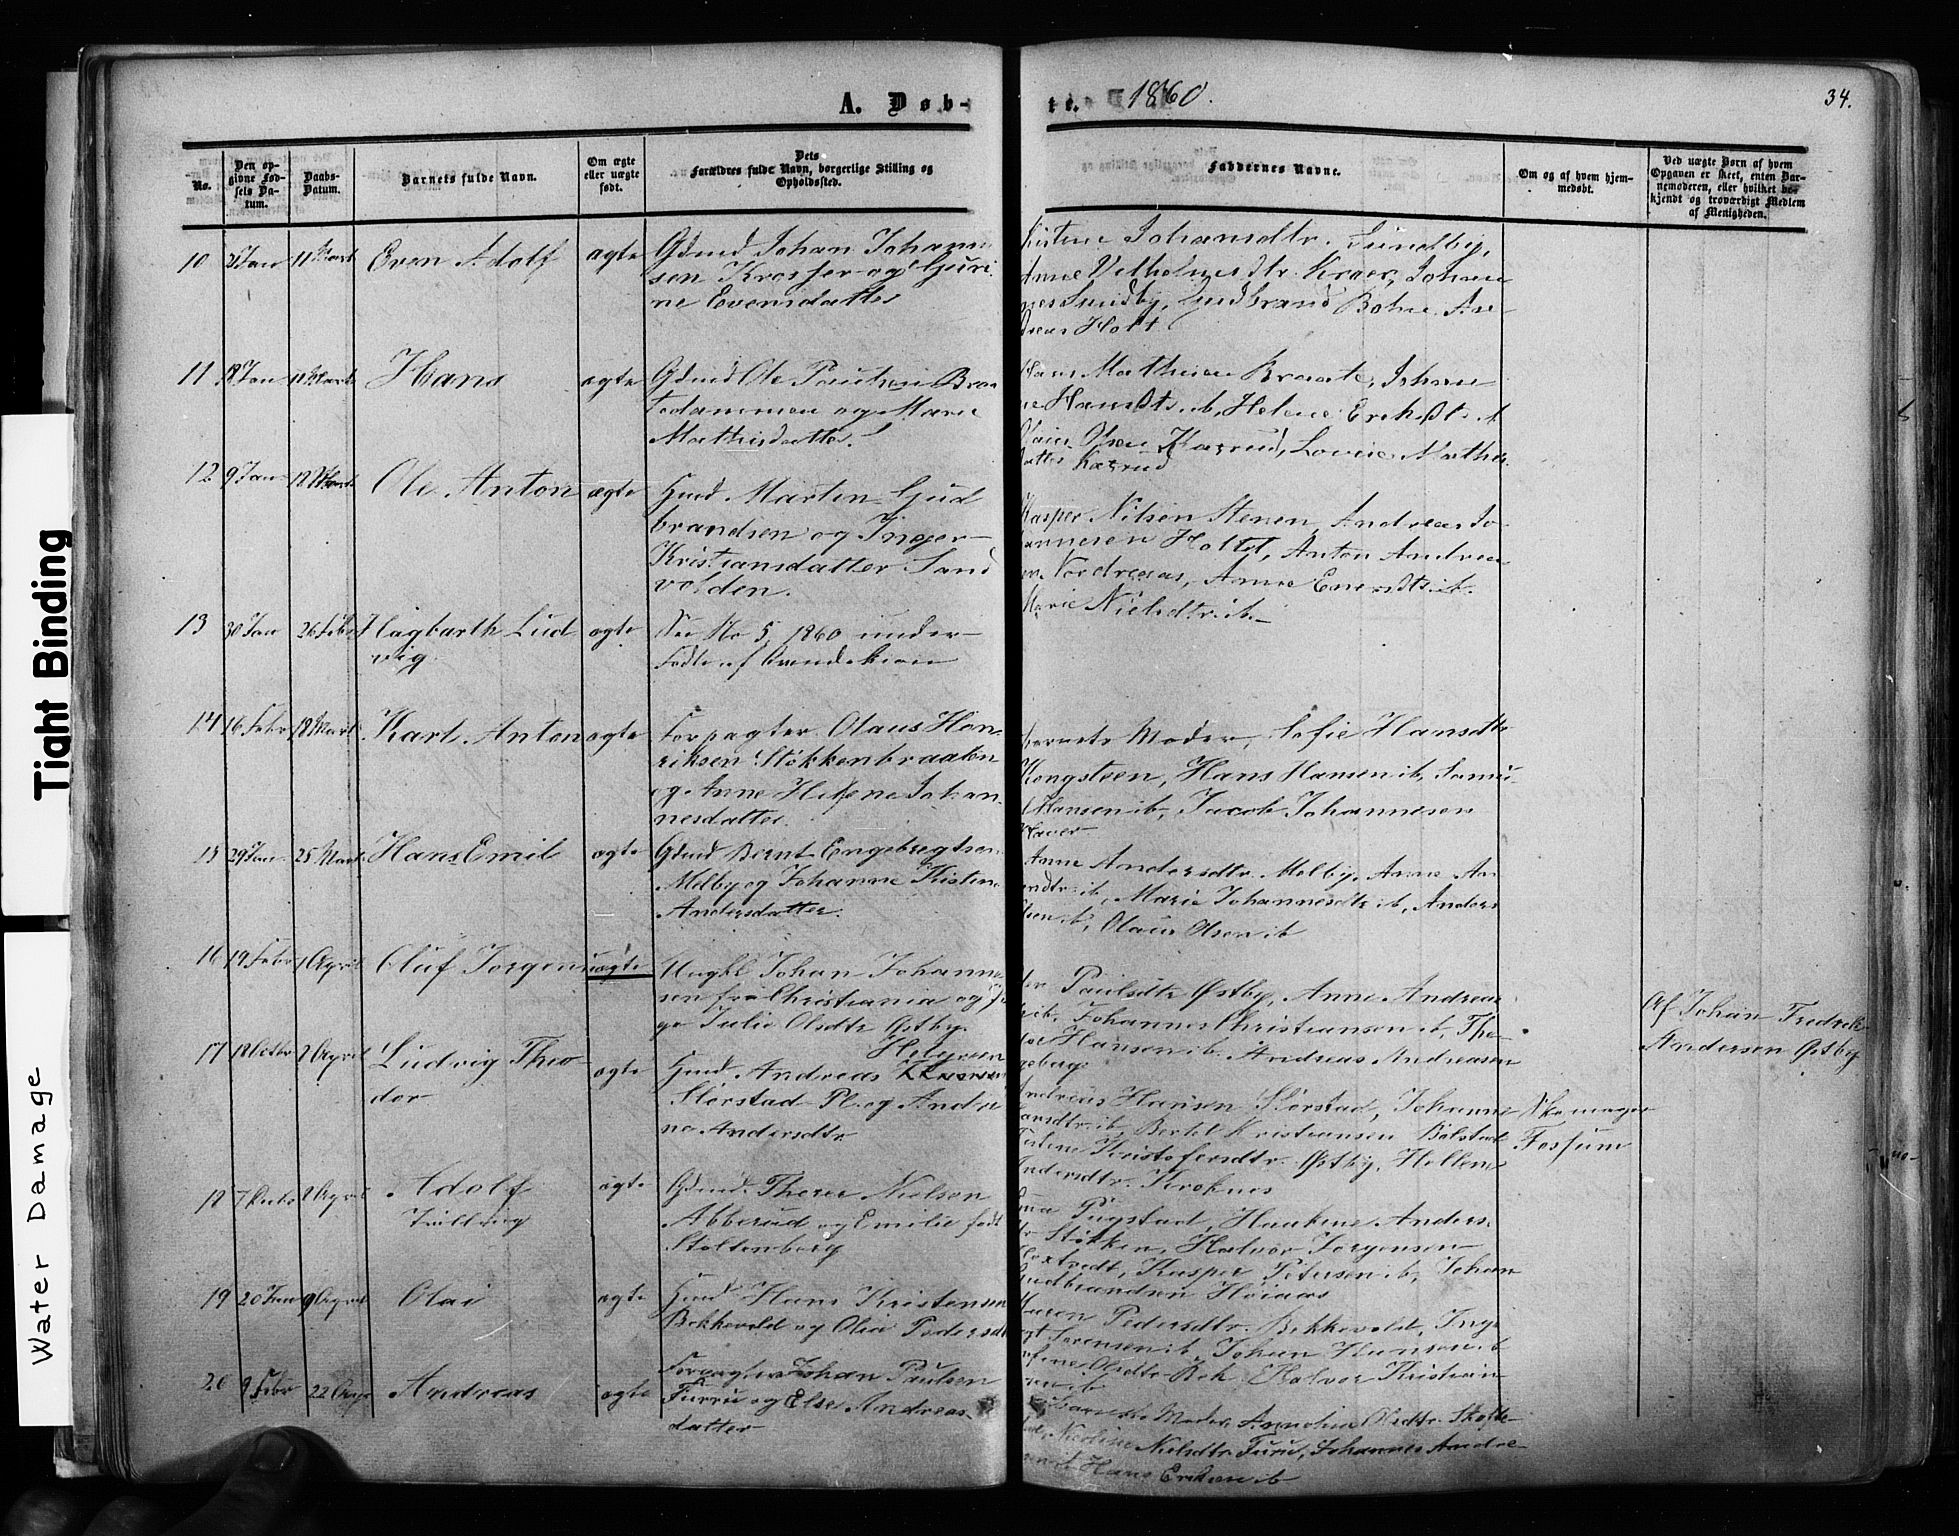 A. Døb-
te. 1860.
34.
No.
Den op-
givne Fød-
sels Da-
tum.
Daabs-
Datum.
Barnets fulde Navn.
Om ægte
eller uægte
født.
Dets
Forældres fulde Navn, borgerlige Stilling og
Opholdssted.
Faddernes Navne.
Om og af hvem hjem-
medøbt.
Ved uægte Børn af hvem
Opgaven er skeet, enten Bar-
nemoderen, eller hvilket be-
kjendt og troværdigt Medlem
af Menigheden.
10 Jan 11 Mart Even Adolf ægte Gdmd Johan Johann
sen Krosser og Guri
ne Evensdatter
Johansdtr. Sundby,
Anne Kraer, Johan
Sundby, Gudbrand Bohne. An
dreas Holt
11 Jan 11 Mart Hans ægte Gdmd Ole Paulsen Braa
tedammen og Marie
Mathisdatter.
Hans Mathisen Braate, Johan
ne Hansdtr. ib, Helene
Olsen Kasrud, Lovise Mathis
datter Kasrud
12 9 Jan 18 Mart Ole Anton ægte Hmd. Martin Gud
brandsen og Inger
Kristiansdatter Sand
volden.
Kasper Nilsen Stenen, Andreas Jo
hannesen Holtet, Anton Andrea
sen Nordreaas, Anne
Marie Nielsdtr. ib.
13 30 Jan 26 Febr Hagbarth Lud
vig.
ægte See No 5, 1860 under
Fødte af Qvindekjøn
14 16 Febr 18 Mart Karl Anton ægte Forpagter Olaus Hen
riksen Støkkenbraaten
og Anne Helene Johan
nesdatter.
Barnets Moder, Sofie Hansdtr
Kongsteen, Hans Hansen ib, Samu
el Hansen ib, Jacob Johannesen
Haver
15 29 Jan 25 Mart Hans Emil ægte Gdmd Bernt Engebregtsen
Melby og Johanne Kistine
Andersdatter.
Anne Andersdtr. Melby, Anne An
dtr. ib, Marie Johannesdtr ib, Anders
Olsen ib, Olaus Olsen ib
16 19 Febr 1 April Oluf Jørgen uægte Ungkl Johan Johanne
sen fra Christiania og Pi
ge Julie Olsdtr Østby.
Paulsdtr Østby, Anne Andreas
dtr ib, Johannes Christiansen ib, The
Hansen ib. Andreas Andreasen
Af Johan Fredrik
Andersen Østby
17 18 Octbr 2 April Ludvig Theo
dor
ægte Hmd. Andreas Helgesen
Størstad Pl og Andri
ne Andersdtr
Andreas Hansen Størstad, Johanne
Hansdtr. ib, Bertel Kristiansen Bølstad
Kistine Kristofersdtr. Østby, Hellene
Andersdtr. Kroknes
Skomager
Fossum
18 7 April Adolf
Tullvig
ægte Gdmd. Theree Nielsen
Abberud og Emilie født
Stoltenberg
Pugstad, Haakene Anders
dtr Støkken, Halvor Jørgensen
Kasper Petersen ib, Johan
Gudbrandsen Høiaas
19 20 Jan 9 April Olai ægte Hmd Hans Kristensen
Bekkevold og Olia Pedersdt
Maren Pedersdtr. Bekkevold, Inge
Sørensen ib Johan Hansen ib
Olsdtr Bek Halvor Kristian
sen ib
20 9 Febr 22 April Andreas ægte Forpagter Johan Paulsen
Furru og Else Andreas
datter
Barnets Moder, Annoline Olsdtr.
Nicoline Nielsdtr Furu, Johannes Andre
ib Hans Eriksen ib
Tight Binding
Water Damage